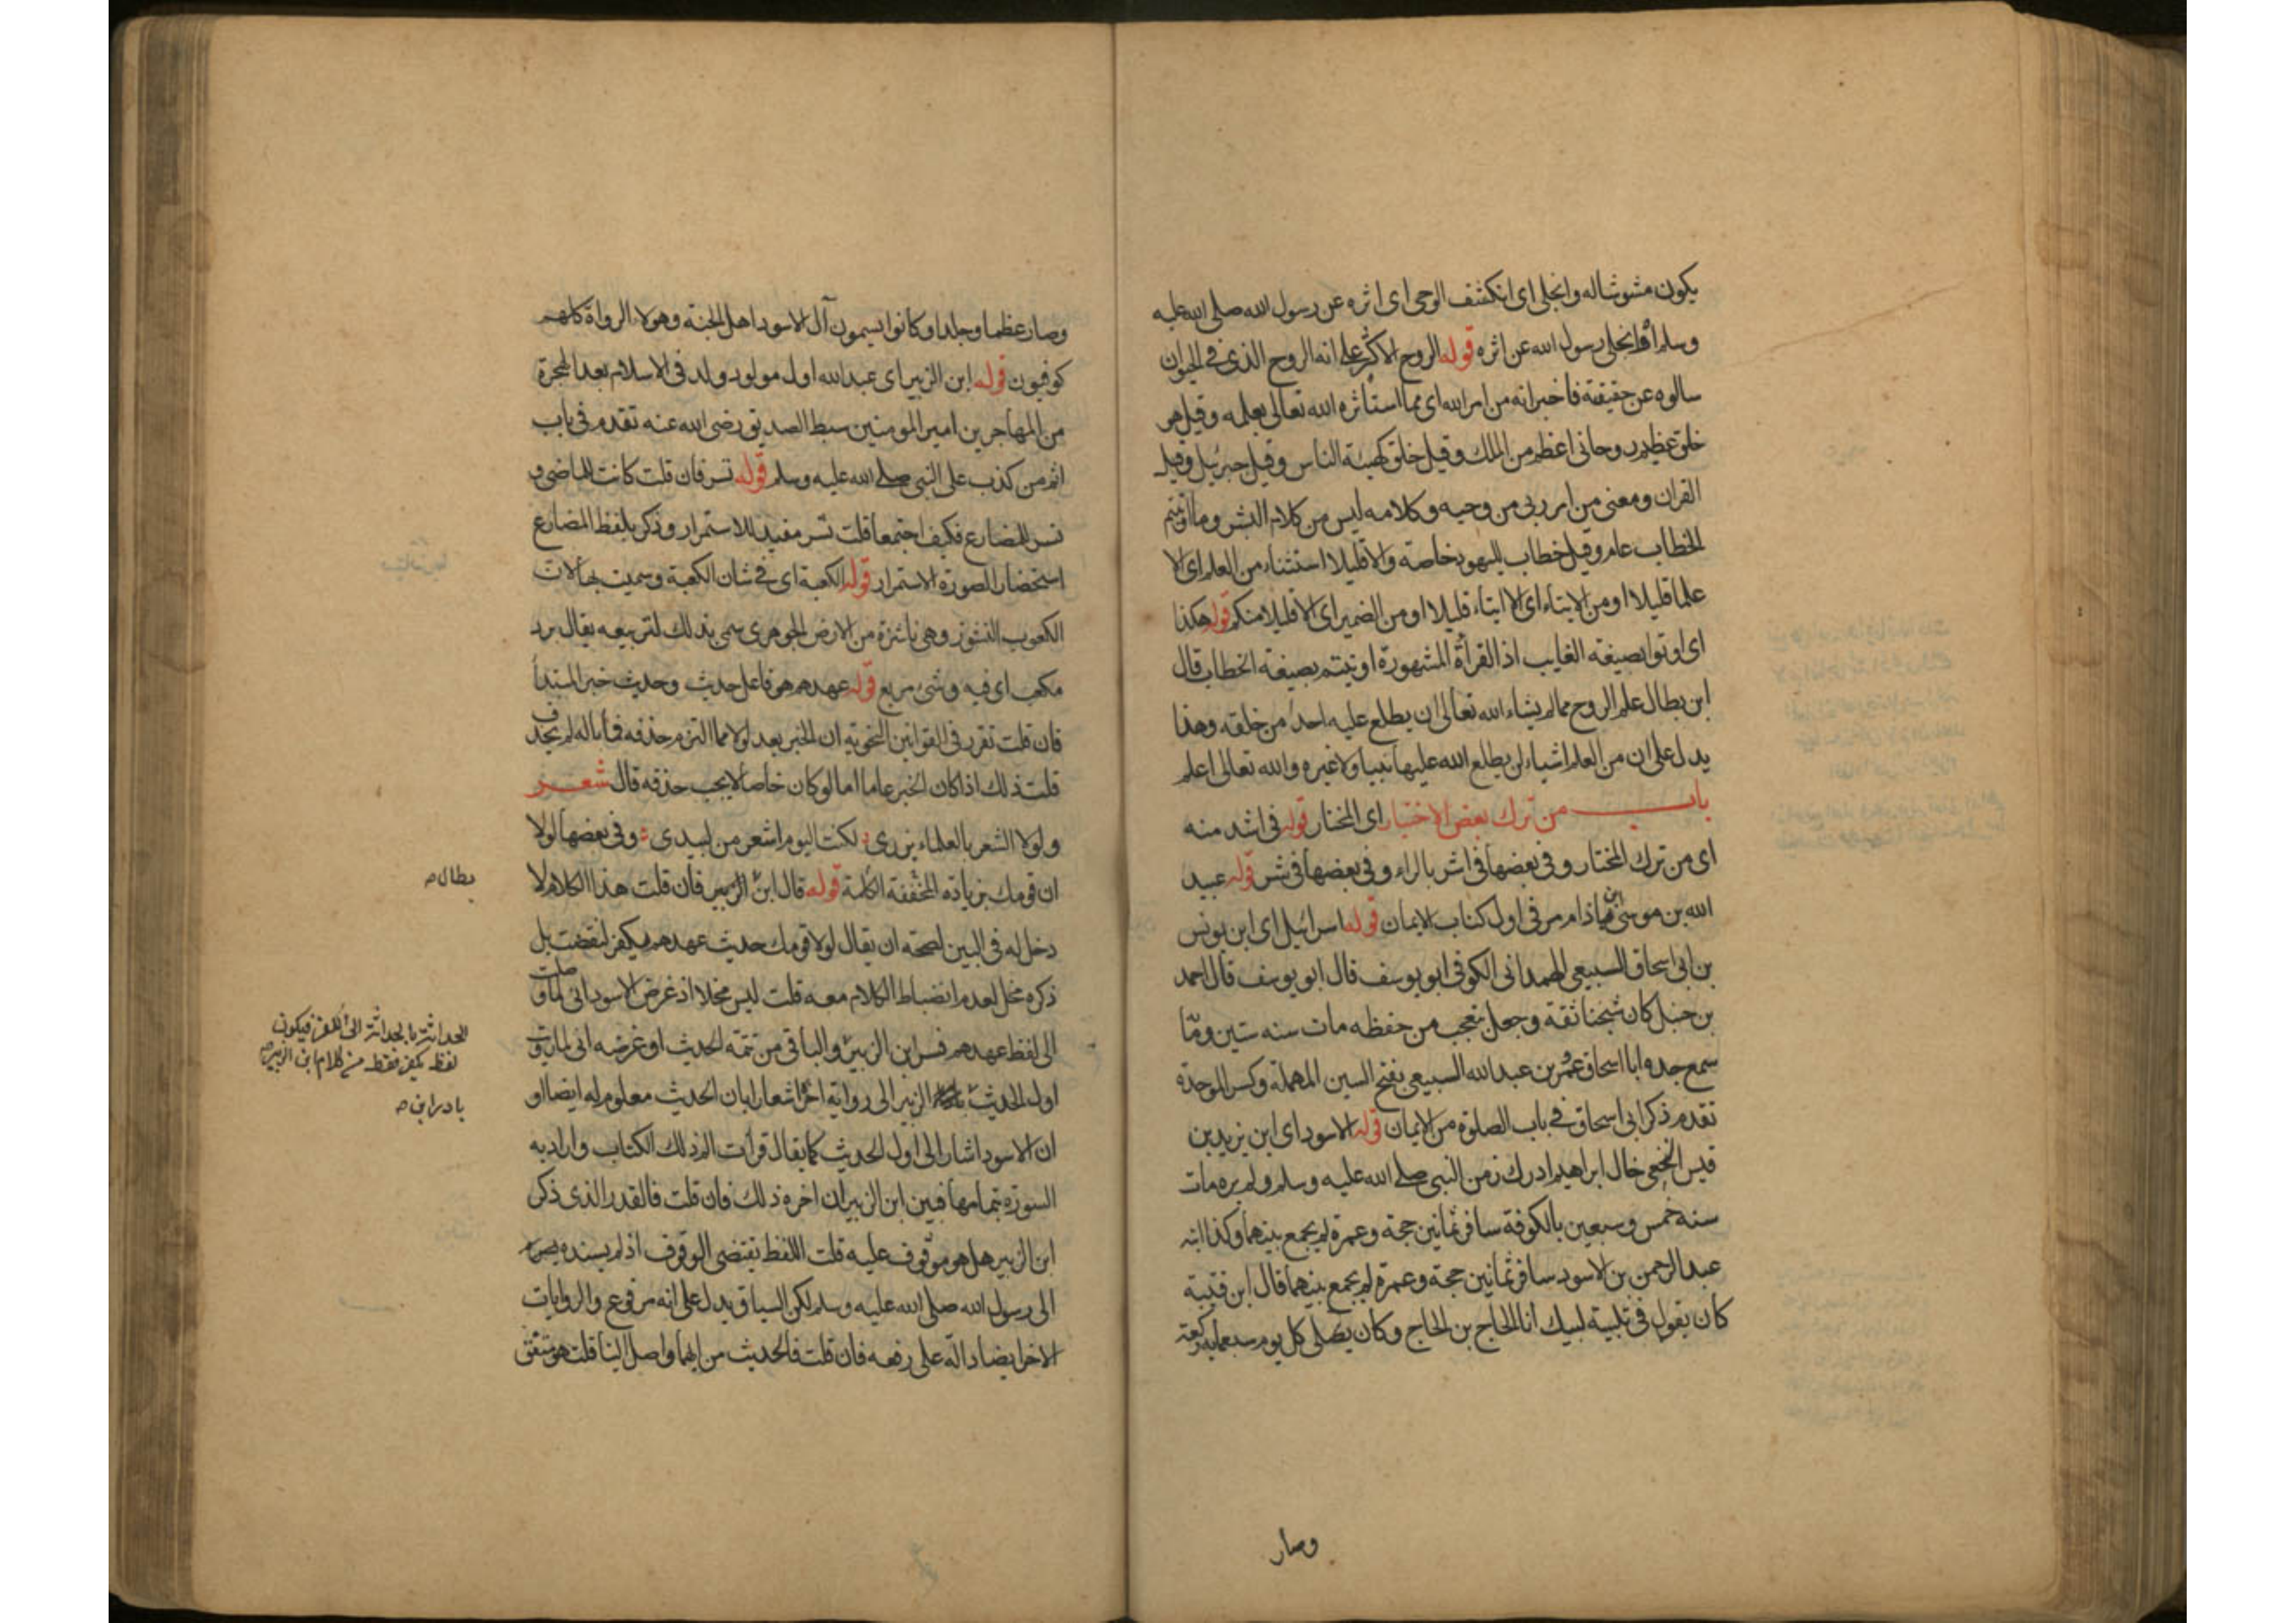 يكون مشوشا له وانجلى اى انكشف الوحى اى اثره عن رسول الله صلى الله عليه
وسلم او انجلى رسول الله عن اثره قوله الروح الاكثر على انه الروح الذى فى الحيوان
سالوه عن حقيقته فاخبر انه من امر الله اى مما استأثره الله تعالى بعلمه وقيل هو
خلق عظيم روحانى اعظم من الملك وقيل خلق كهيئة الناس وقيل جبرئيل وقيل
القران ومعنى من امر ربى من وحيه وكلامه ليس من كلام البشر وما اوتيتم
الخطاب عام وقيل خطاب لليهود خاصة والا قليلا استثناء من العلم اى الا
علما قليلا او من الايتاء اى الا ايتاء قليلا او من الضمير اى الا قليلا منكم قوله هكذا
اى اوتوا بصيغة الغايب اذ القرأة المشهورة اوتيتم بصيغة الخطاب قال
ابن بطال علم الروح مما لم يشاء الله تعالى ان يطلع عليه احد من خلقه وهذا
يدل على ان من العلم اشياء لن يطلع الله عليها نبيا ولا غيره والله تعالى اعلم
باب من ترك بعض الاختيار اى المختار قوله فى اشد منه
اى من ترك المختار وفى بعضها فى اشر بالراء وفى بعضها فى شر قوله عبيد
الله بن موسى ابن باذام مر فى اول كتاب الايمان قوله اسرائيل اى ابن يونس
بن ابى اسحاق السبيعى الهمدانى الكوفى ابو يوسف قال ابو يوسف قال احمد
بن حنبل كان شيخنا ثقة وجعل يتعجب من حفظه مات سنه ستين ومائة
سمع جده ابا اسحاق عمرو بن عبد الله السبيعى بفتح السين المهملة وكسر الموحدة
تقدم ذكر ابى اسحاق فى باب الصلوة من الايمان قوله الاسود اى ابن يزيد بن
قيس النخعى خال ابراهيم ادرك زمن النبى صلى الله عليه وسلم ولم يره مات
سنه خمس وسبعين بالكوفة سافر ثمانين حجة وعمرة لم يجمع بينهما وكذا ابنه
عبد الرحمن بن الاسود سافر ثمانين حجة وعمرة لم يجمع بينهما قال ابن قتيبة
كان يقول فى تلبية لبيك انا الحاج بن الحاج وكان يصلى كل يوم سبعمايه ركعة
وصار
وصار عظما وجلدا وكانوا يسمون آل الاسود اهل الجنة وهولاء الرواة كلهم
كوفيون قوله ابن الزبير اى عبد الله اول مولود ولد فى الاسلام بعد الهجرة
من المهاجرين امير المومنين سبط الصديق رضى الله عنه تقدم فى باب
اثم من كذب على النبى صلى الله عليه وسلم قوله تسر فان قلت كانت للماضى و
تسر للمضارع فكيف اجتمعا قلت تسر مفيد للاستمرار وذكر بلفظ المضارع
استحضارا لصورة الاستمرار قوله الكعبة اى فى شان الكعبة وسميت بها لان
الكعوب النشوز وهى ناشزة من الارض الجوهرى سمى بذلك لتربيعه يقال برد
مكعب اى فيه وشى مربع قوله عهدهم هو فاعل حديث وحديث خبر المبتدأ
فان قلت تقرر فى القوانين النحوية ان الخبر بعد لولا مما التزم حذفه فما باله لم يحذف
قلت ذلك اذا كان الخبر عاما اما لو كان خاصا لا يجب حذفه قال شعر
ولولا الشعر بالعلماء يزرى : لكنت اليوم اشعر من لبيدى : وفى بعضها لولا
ان قومك بزيادة المخففة الكلمة قوله قال ابن الزبير فان قلت هذا الكلام لا
دخل له فى البين لصحة ان يقال لولا قومك حديث عهدهم بكفر لنقضت بل
ذكره مخل لعدم انضباط الكلام معه قلت ليس مخلا اذ غرض الاسود انى لما وصلت
الى لفظ عهدهم فسر ابن الزبير والباقى من تتمة الحديث او غرضه انى لما رويت
اول الحديث الزبير الى رواية اخرا اشعارا بان الحديث معلوم له ايضا او
ان الاسود اشار الى اول الحديث كما يقال قرأت الم ذلك الكتاب واراد به
السورة بتمامها فبين ابن الزبير ان اخره ذلك فان قلت فالقدر الذى ذكر
ابن الزبير هل هو موقوف عليه قلت اللفظ يقتضى الوقوف اذ لم يسنده
الى رسول الله صلى الله عليه وسلم لكن السياق يدل على انه مرفوع والروايات
الاخر ايضا دالة على رفعه فان قلت فالحديث من ايهما واصل الينا قلت هو متفق
بطال
لفظ بكفر فقط من كلام ابن الزبير
بادر ابن